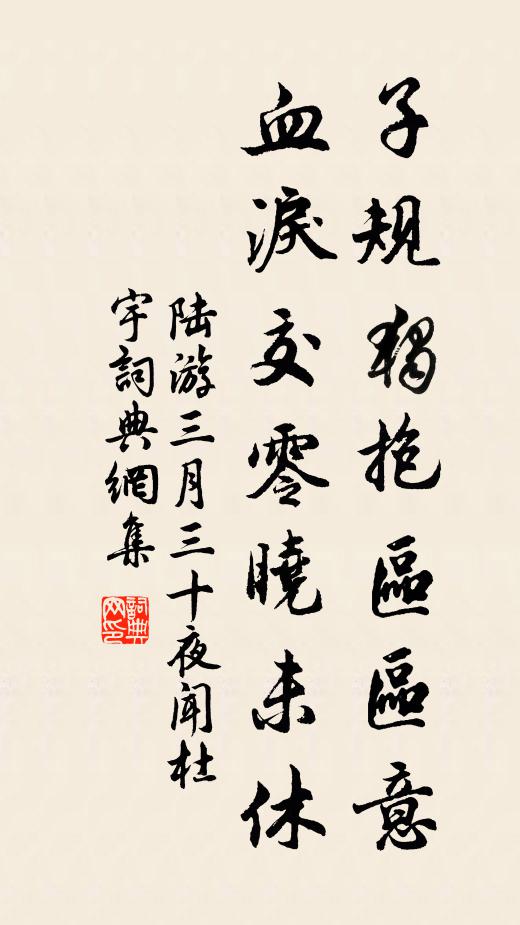 子規獨抱區區意
血淚交零曉未休
陆游三月三十夜闻杜
宇詞典網集
詞典网印